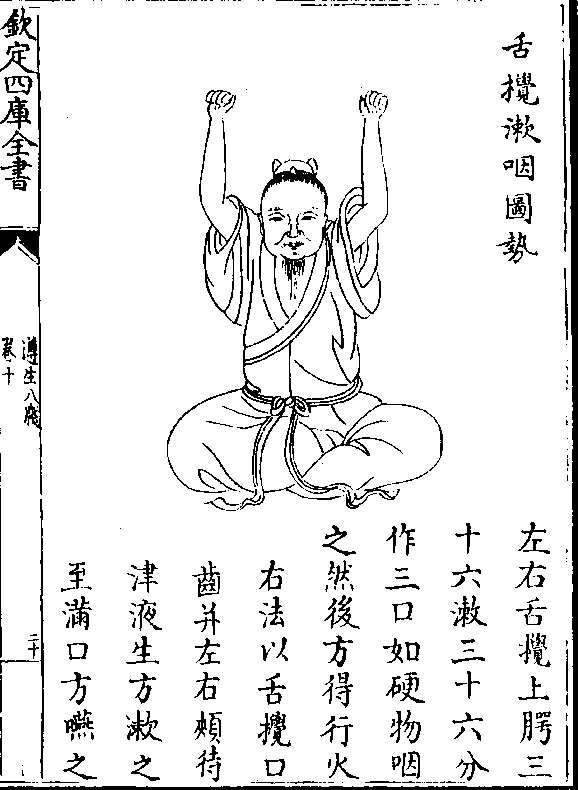 舌攪漱咽圖勢
左右舌攪上腭三
十六漱三十六分
作三口如硬物咽
之然後方得行火
右法以舌攪口
齒并左右頰待
津液生方漱之
至滿口方嚥之
欽定四庫全書
遵生八牋
卷十
二十